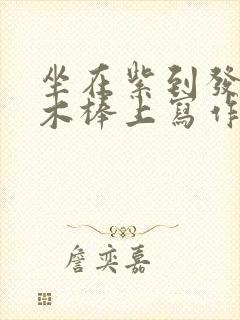 坐在紫到發
木棒上寫作
詹奕嘉